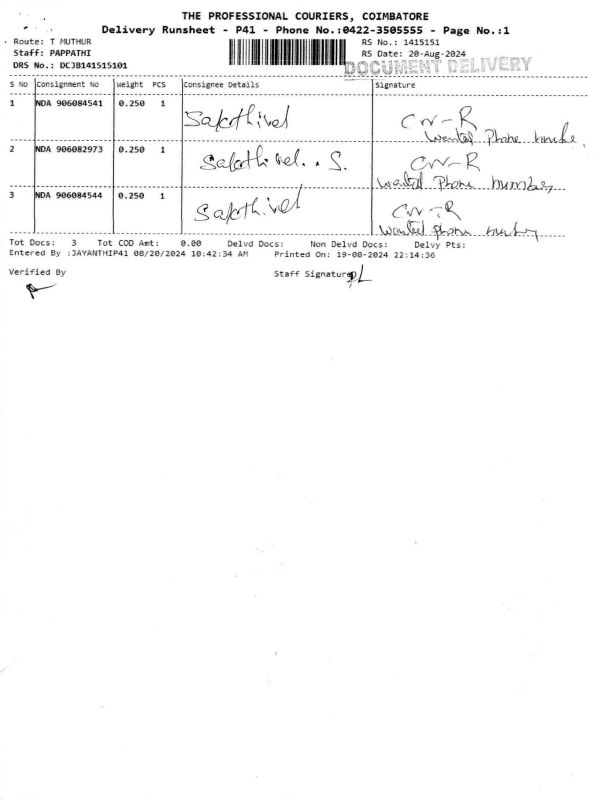 THE PROFESSIONAL COURIERS, COIMBATORE
Delivery Runsheet - P41 - Phone No.:0422-3505555 - Page No.:1
Route: T MUTHUR
RS No.: 1415151
Staff: PAPPATHI
RS Date: 20-Aug-2024
DRS No.: DCJB141515101
DOCUMENT DELIVERY
S No Consignment No Weight PCS Consignee Details Signature
1 NDA 906084541 0.250 1 Sakthivel CN-R
Wanted Phone
2 NDA 906082973 0.250 1 Sakthivel..S. CN-R
Wanted Phone number
3 NDA 906084544 0.250 1 Sakthivel CN-R
Wanted phone
Tot Docs: 3 Tot COD Amt: 0.00 Delvd Docs: Non Delvd Docs: Delvy Pts:
Entered By :JAYANTHIP41 08/20/2024 10:42:34 AM Printed On: 19-08-2024 22:14:36
Verified By Staff Signature